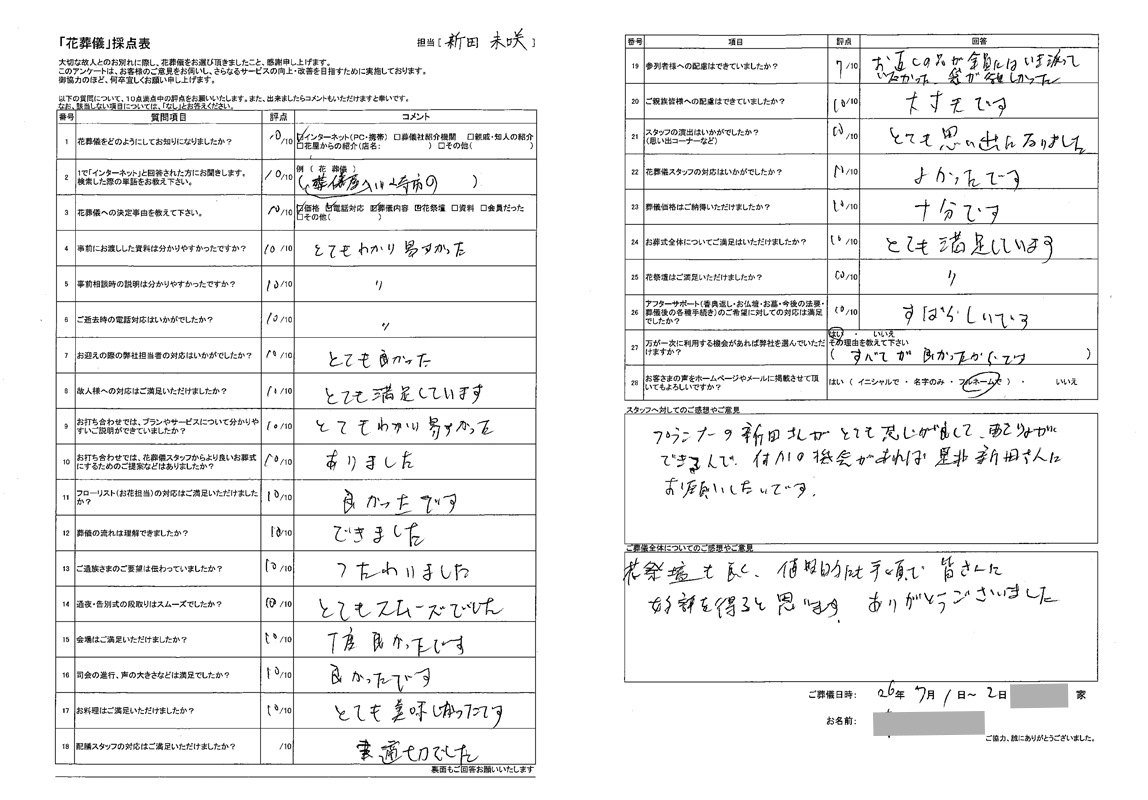 「花葬儀」採点表
担当 [ 新田 未咲 ]
大切な故人とのお別れに際し、花葬儀をお選び頂きましたこと、感謝申し上げます。
このアンケートは、お客様のご意見をお伺いし、さらなるサービスの向上・改善を目指すために実施しております。
御協力のほど、何卒宜しくお願い申し上げます。
以下の質問について、10点満点中の評点をお願いいたします。また、出来ましたらコメントもいただけますと幸いです。
なお、該当しない項目については、「なし」とお答えください。
番号 質問項目 評点 コメント
1 花葬儀をどのようにしてお知りになりましたか? 10/10 ☑インターネット(PC・携帯) □葬儀社紹介機関 □親戚・知人の紹介
□花屋からの紹介(店名: ) □その他( )
2 1で「インターネット」と回答された方にお聞きします。
検索した際の単語をお教え下さい。 10/10 例 ( 花 葬儀 )
3 花葬儀への決定事由を教えて下さい。 10/10 ☑価格 ☑電話対応 ☑葬儀内容 ☑花祭壇 □資料 □会員だった
□その他( )
4 事前にお渡しした資料は分かりやすかったですか? 10/10 とてもわかり易すかった
5 事前相談時の説明は分かりやすかったですか? 10/10 〃
6 ご逝去時の電話対応はいかがでしたか? 10/10 〃
7 お迎えの際の弊社担当者の対応はいかがでしたか? 10/10 とても良かった
8 故人様への対応はご満足いただけましたか? 10/10 とても満足しています
9 お打ち合わせでは、プランやサービスについて分かりや
すいご説明ができていましたか? 10/10 とてもわかり易すかった
10 お打ち合わせでは、花葬儀スタッフからより良いお葬式
にするためのご提案などはありましたか? 10/10 ありました
11 フローリスト(お花担当)の対応はご満足いただけました
か? 10/10 良かったです
12 葬儀の流れは理解できましたか? 10/10 できました
13 ご遺族さまのご要望は伝わっていましたか? 10/10 つたわりました
14 通夜・告別式の段取りはスムーズでしたか? 10/10 とてもスムーズでした
15 会場はご満足いただけましたか? 10/10 丁度良かったです
16 司会の進行、声の大きさなどは満足でしたか? 10/10 良かったです
17 お料理はご満足いただけましたか? 10/10 とても美味しかったです
18 配膳スタッフの対応はご満足いただけましたか? /10 適切でした
裏面もご回答お願いいたします
番号 項目 評点 回答
19 参列者様への配慮はできていましたか? 7/10 お返しの品が全員にはいき渡って
いなかった 袋が欲しかった
20 ご親族皆様への配慮はできていましたか? 10/10 大丈夫です
21 スタッフの演出はいかがでしたか?
(思い出コーナーなど) 10/10 とても思い出になりました
22 花葬儀スタッフの対応はいかがでしたか? 10/10 よかったです
23 葬儀価格はご納得いただけましたか? 10/10 十分です
24 お葬式全体についてご満足はいただけましたか? 10/10 とても満足しています
25 花祭壇はご満足いただけましたか? 10/10 〃
26 アフターサポート(香典返し・お仏壇・お墓・今後の法要・
葬儀後の各種手続き)のご希望に対しての対応は満足
でしたか? 10/10 すばらしいでる
27 万が一次に利用する機会があれば弊社を選んでいただ
けますか? はい ・ いいえ
その理由を教えて下さい
( すべてが良かったからです )
28 お客さまの声をホームページやメールに掲載させて頂
いてもよろしいですか? はい ( イニシャルで ・ 名字のみ ・ フルネームで ) ・ いいえ
スタッフへ対してのご感想やご意見
プランナーの新田さんがとても感じが良くて、
できるんで、の機会があれば是非新田さんに
お願いしたいです。
ご葬儀全体についてのご感想やご意見
花祭壇も良く、値段的にも手頃で皆さんに
好評を得ると思います ありがとうございました
ご葬儀日時: 26年 7月 1日~ 2日 家
お名前:
ご協力、誠にありがとうございました。